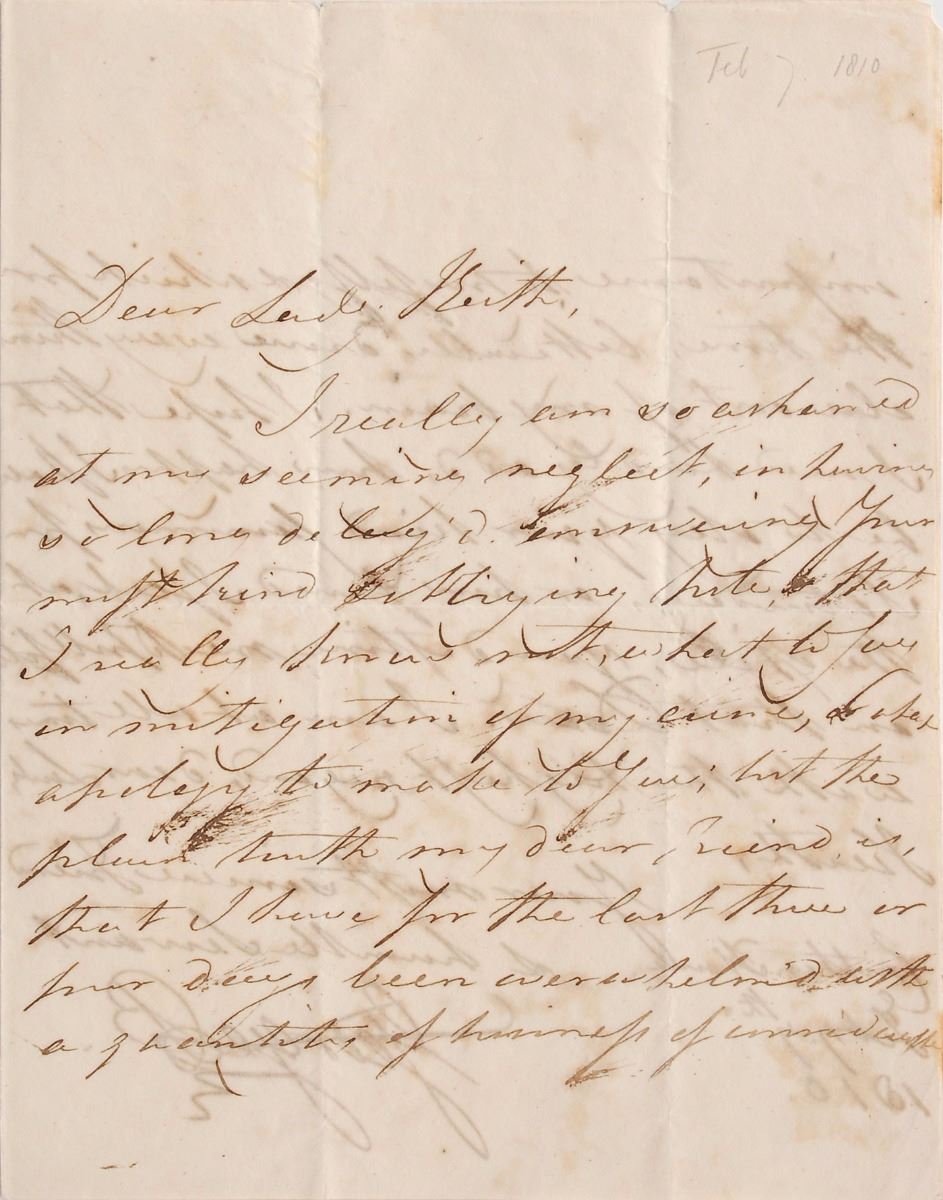 Feb 7. 1810
Dear Lady Keith,
I really am so ashamed
at my seeming neglect, in having
so long delay'd answering Your
most kind & obliging Note, that
I really know not, what to say
in mitigation of my crime, or what
apology to make to You; but the
plain truth my dear Friend, is,
that I have for the last three or
four days been overwhelm'd with
a quantity of business of considerable